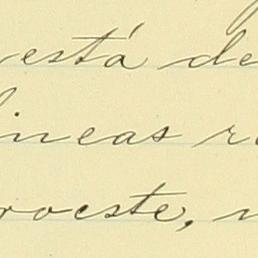 está de
lineas r
roeste,